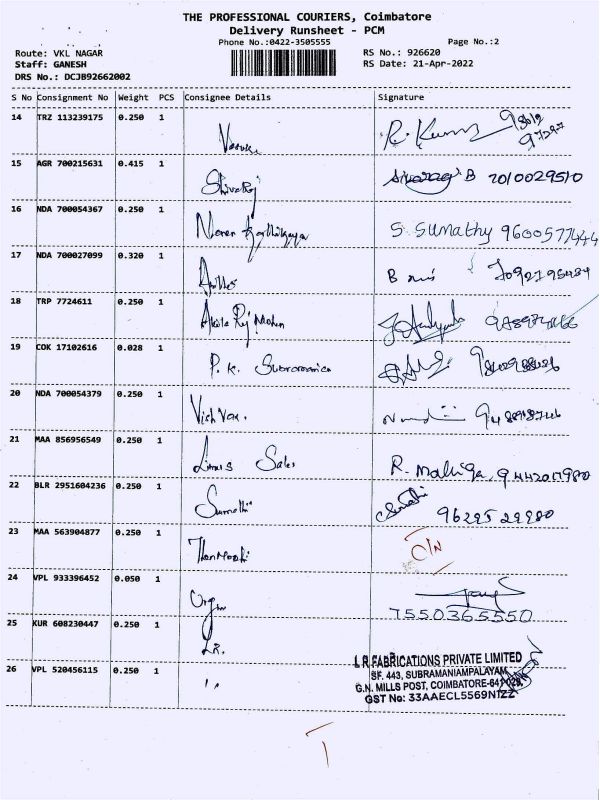 THE PROFESSIONAL COURIERS, Coimbatore
Delivery Runsheet - PCM
Phone No.:0422-3505555
Page No.:2
Route: VKL NAGAR
RS No.: 926620
Staff: GANESH
RS Date: 21-Apr-2022
DRS No.: DCJB92662002
S No Consignment No Weight PCS Consignee Details Signature
14 TRZ 113239175 0.250 1
R. Kum
15 AGR 700215631 0.415 1
Shivaraj
B 7010029510
16 NDA 700054367 0.250 1
Naren Karthikeyan S Sumathy 9600577444
17 NDA 700027099 0.320 1
18 TRP 7724611 0.250 1
Akila Raj Mohan
19 COK 17102616 0.028 1
P. K. Subramanian
20 NDA 700054379 0.250 1
21 MAA 856956549 0.250 1
Sales R. Maliga, 9442017980
22 BLR 2951604236 0.250 1
Sumathi
9629529980
23 MAA 563904877 0.250 1
C/N
24 VPL 933396452 0.050 1
7550365550
25 KUR 608230447 0.250 1
L.R.
26 VPL 520456115 0.250 1
"
L R FABRICATIONS PRIVATE LIMITED
SF. 443, SUBRAMANIAMPALAYAM,
G.N. MILLS POST, COIMBATORE-641 029.
GST No: 33AAECL5569N1ZZ